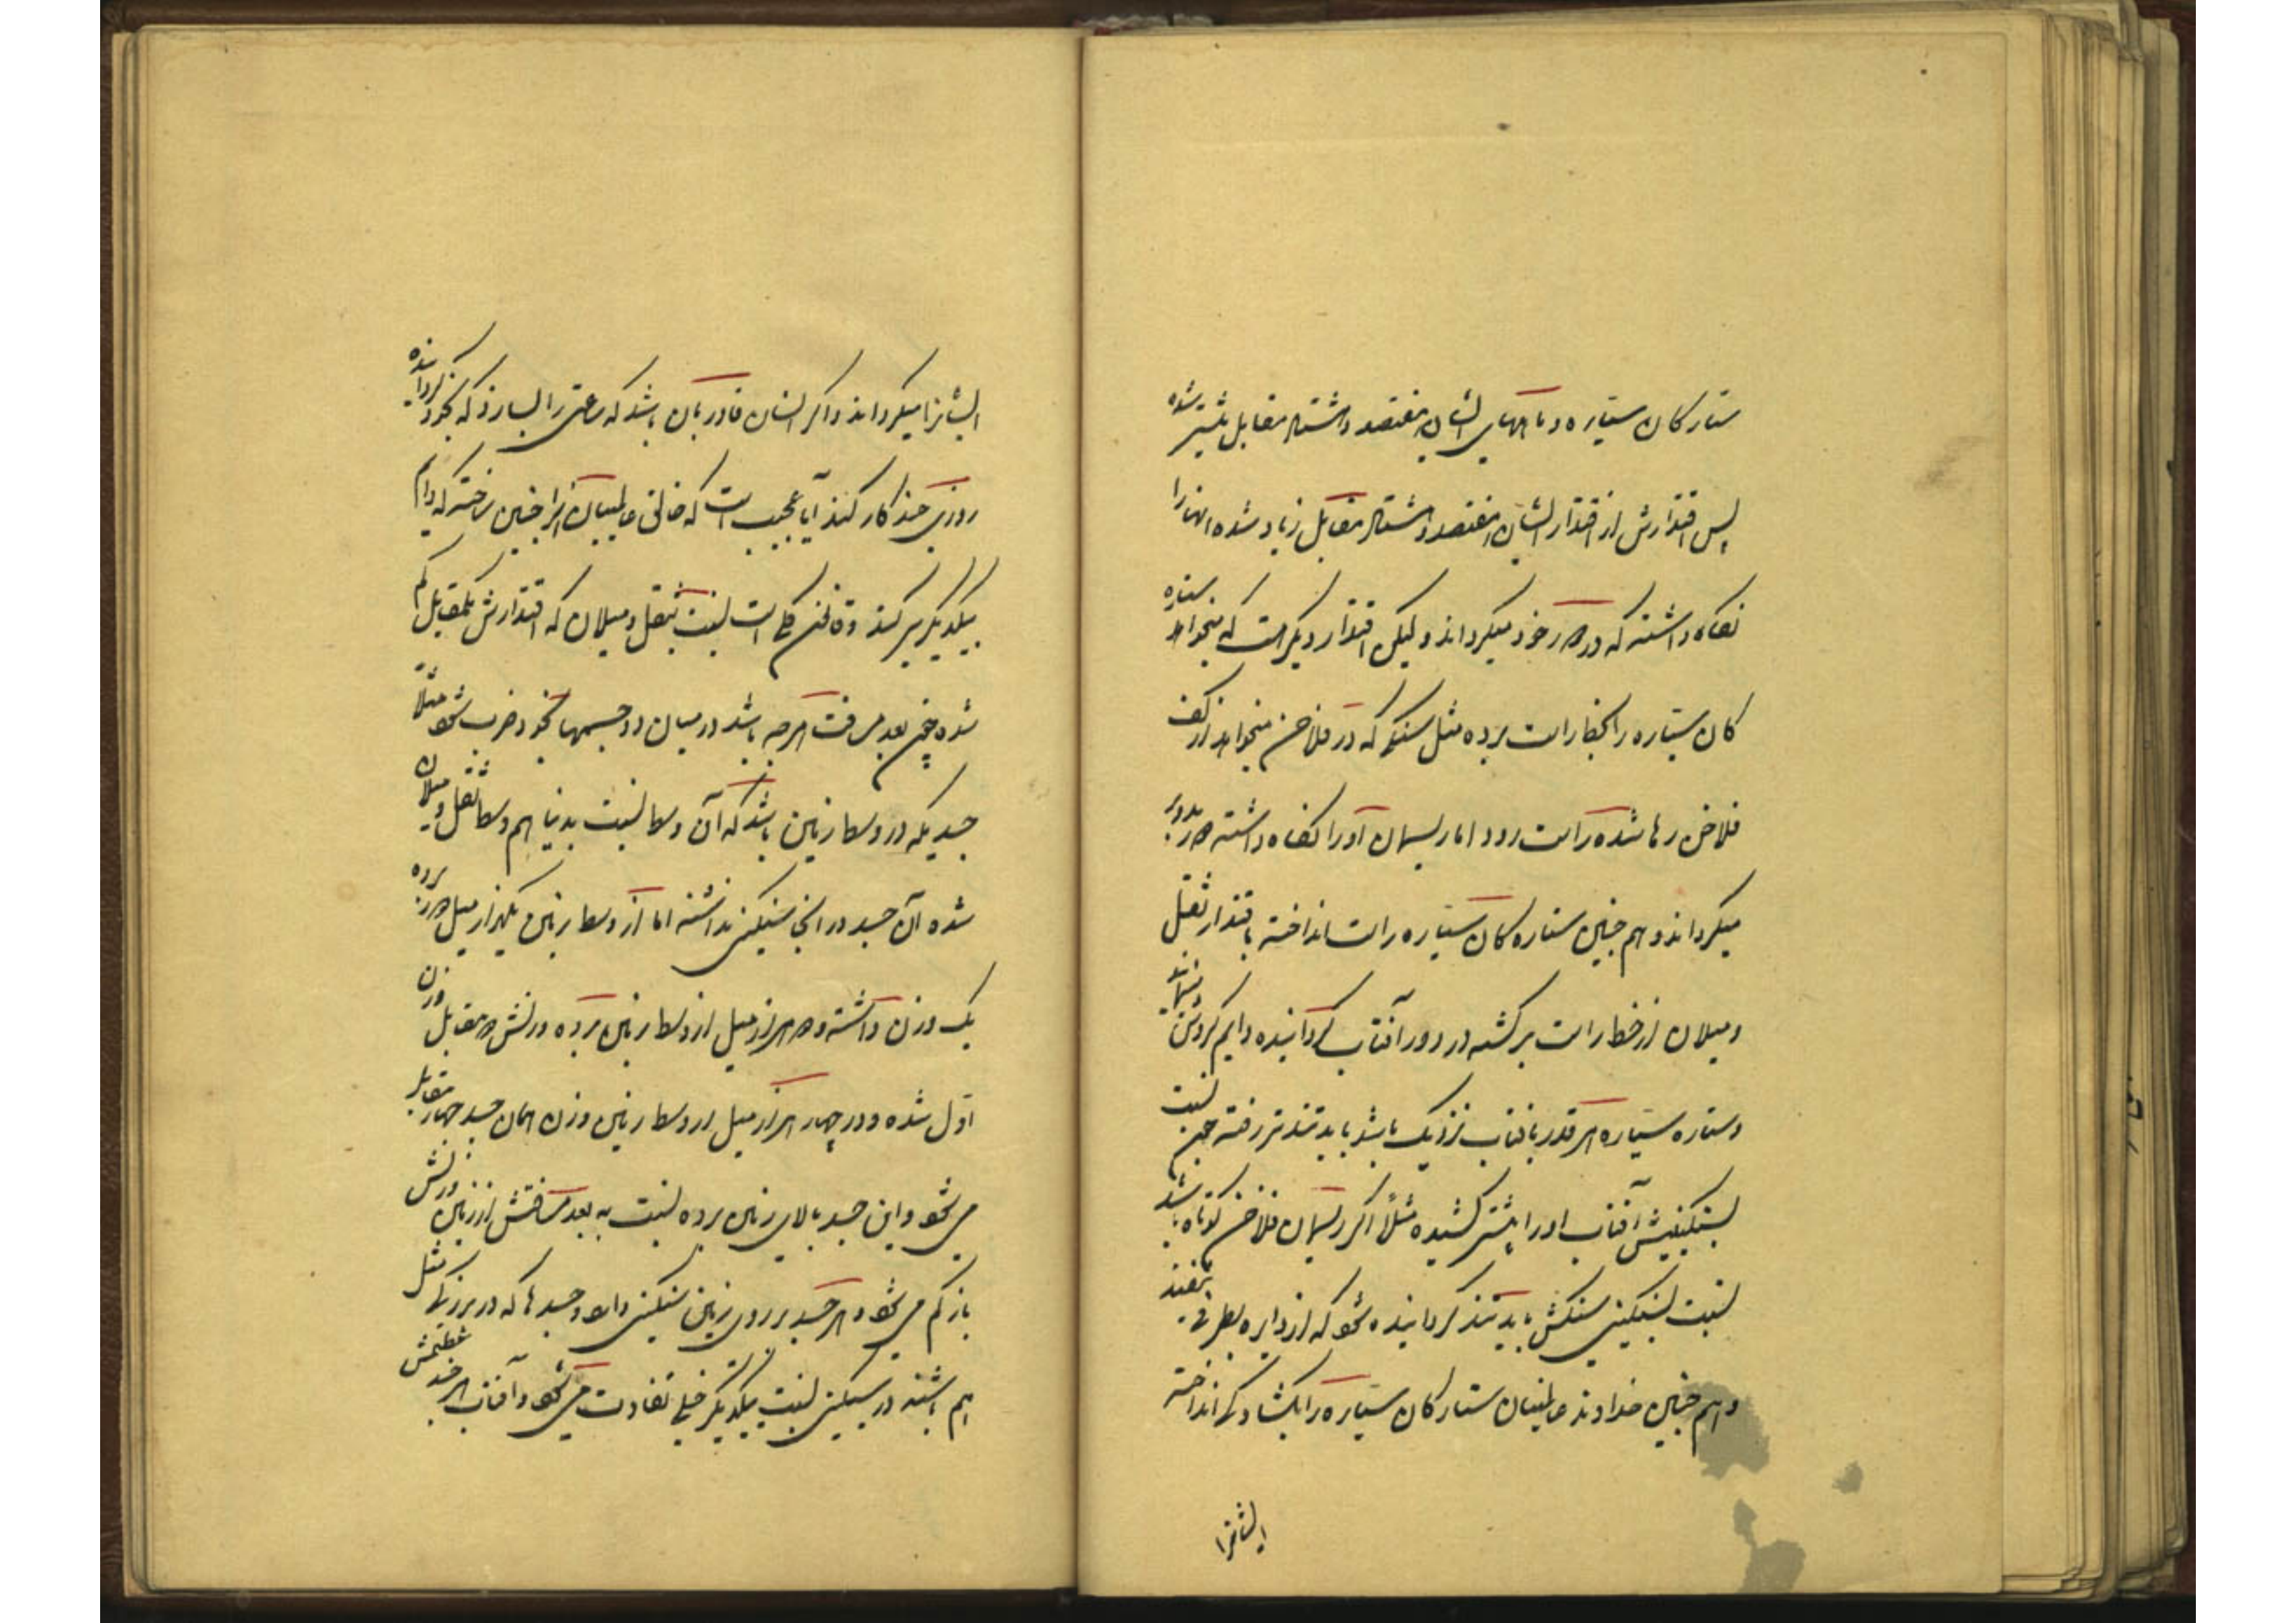 ستارگان سیاره و ماههای ایشان هفتصد و هشتاد مقابل بیشتر شده
پس اقتدارش از اقتدار ایشان هفتصد و هشتاد مقابل زیاد شده آنها را
نگاه داشته که در دور خود میگرداند ولیکن اقتدار دیگر هست که میخواهد ستاره
کان سیاره را بخط راست برده مثل سنگی که در فلاخن میخواهد از کف
فلاخن رها شده راست رود اما ریسمان آنرا نگاه داشته در دور
میگرداند و هم چنین ستاره کان سیاره راست انداخته باقتدار ثقل
و میلان از خط راست برگشته در دور آفتاب گردانیده دایم گردش
و ستاره سیاره هر قدر بآفتاب نزدیک باشد باید تندتر رفته نسبت
بسنگینیش آفتاب او را بیشتر کشیده مثلا اگر ریسمان فلاخن کوتاه باشد
نسبت بسنگینی سنگش باید تند گردانیده شود که از دایره بطرفی نیفتد
و هم چنین خداوند عالمیان ستارگان سیاره را انداخته
ایشانرا
ایشانرا میگرداند و اگر انسان قادر بآن باشد که ساعتی را بسازد که گردانیده
روزی چند کار کند آیا عجیب است که خالق عالمیان آنرا چنین ساخته که دایم
بیکدیگر سیر کنند و قانون کلی است نسبت بثقل و میلان که اقتدارش بمقابل کم
شده بعد مسافت هر چه باشد در میان دو جسمها بخود ضرب شود مثلا
جسدیکه در وسط زمین باشد که آن وسط نسبت بدنیا هم وسط ثقل و میلان
شده آن جسد در آنجا سنگینی نداشته اما از وسط زمین یکهزار میل برده
یک وزن داشته و دو هزار میل از وسط زمین برده وزنش مقابل وزن
اول شده و در چهار هزار میل از وسط زمین وزن همان جسد چهار مقابل
می شود و این جسد بالای زمین برده نسبت به بعد مسافتش از زمین وزنش
باز کم می شود و هر جسد بر روی زمین سنگینی دارد و جسدها که در بزرگی مثل
هم باشند در سنگینی نسبت بیکدیگر خیلی تفاوت می شود و آفتاب هر چند عظمتش